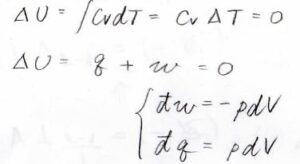 ΔU = ∫CvdT = Cv ΔT = 0
ΔU = q + w = 0
{ đw = -pdV
đq = pdV